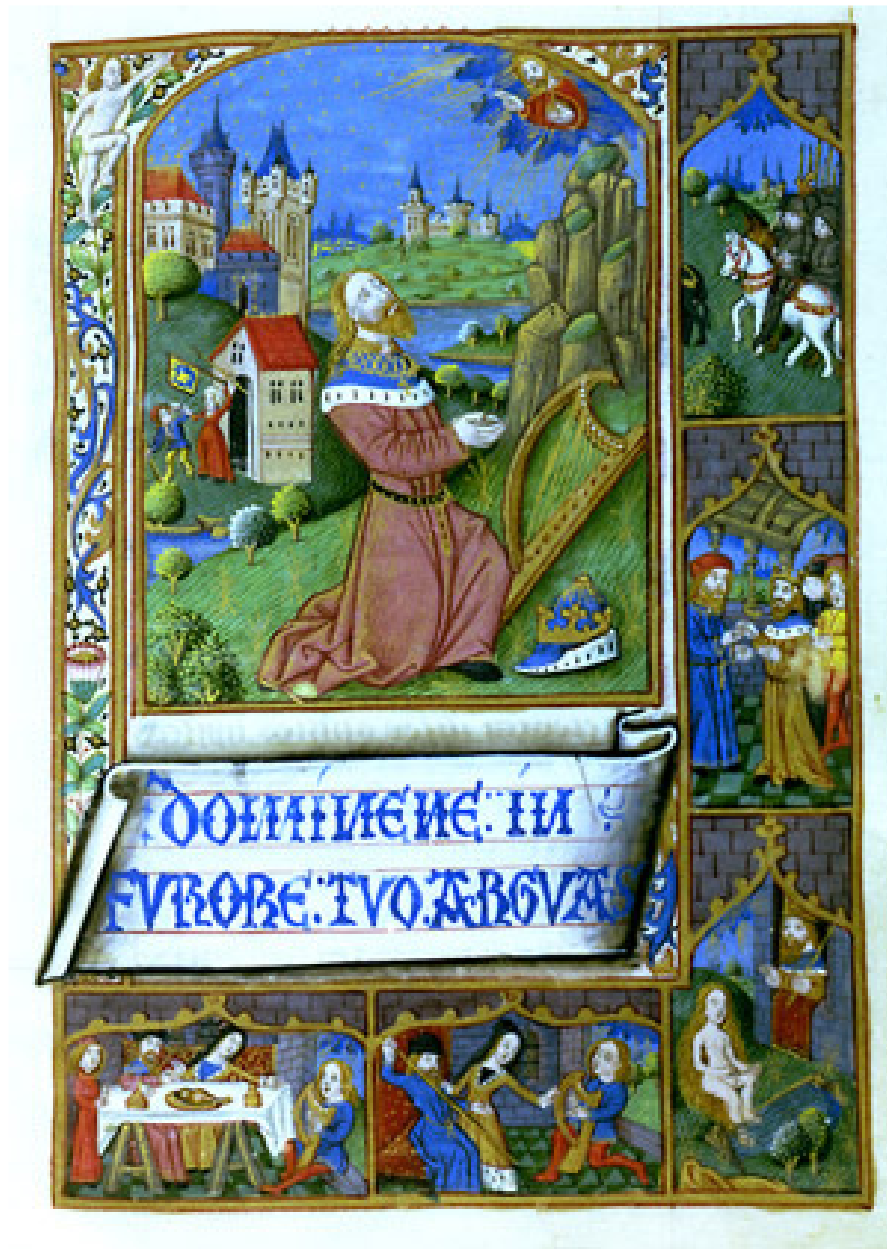 DOMINENE: IN
FVRORE:TVO.ARGVAS